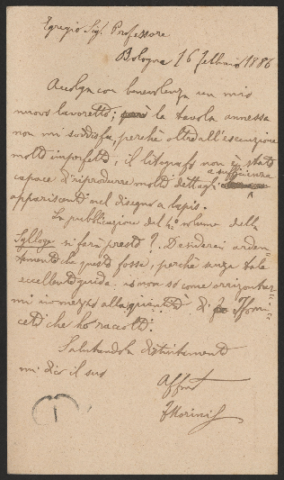 Egregio Sigr Professore
Bologna 16 febbraio 1886
Accolga con benevolenza un mio
nuovo lavoretto; però la tavola annessa
non mi soddisfa, perchè oltre all'esecuzione
molto imperfetta, il litografo non in stato
a sufficienza
capace di riprodurre molti dettagli
appariscenti nel disegno a lapis.
La pubblicazione del 4º volume della
Sylloge si farà presto? Desidererei arden-
temente che questo fosse, perchè senza tale
eccellente guida non so come orizzontar-
mi in mezzo alla quantità di Ifomi-
ceti che ho raccolti.
Salutandola distintamente
mi dico il suo
Affmo
F Morini